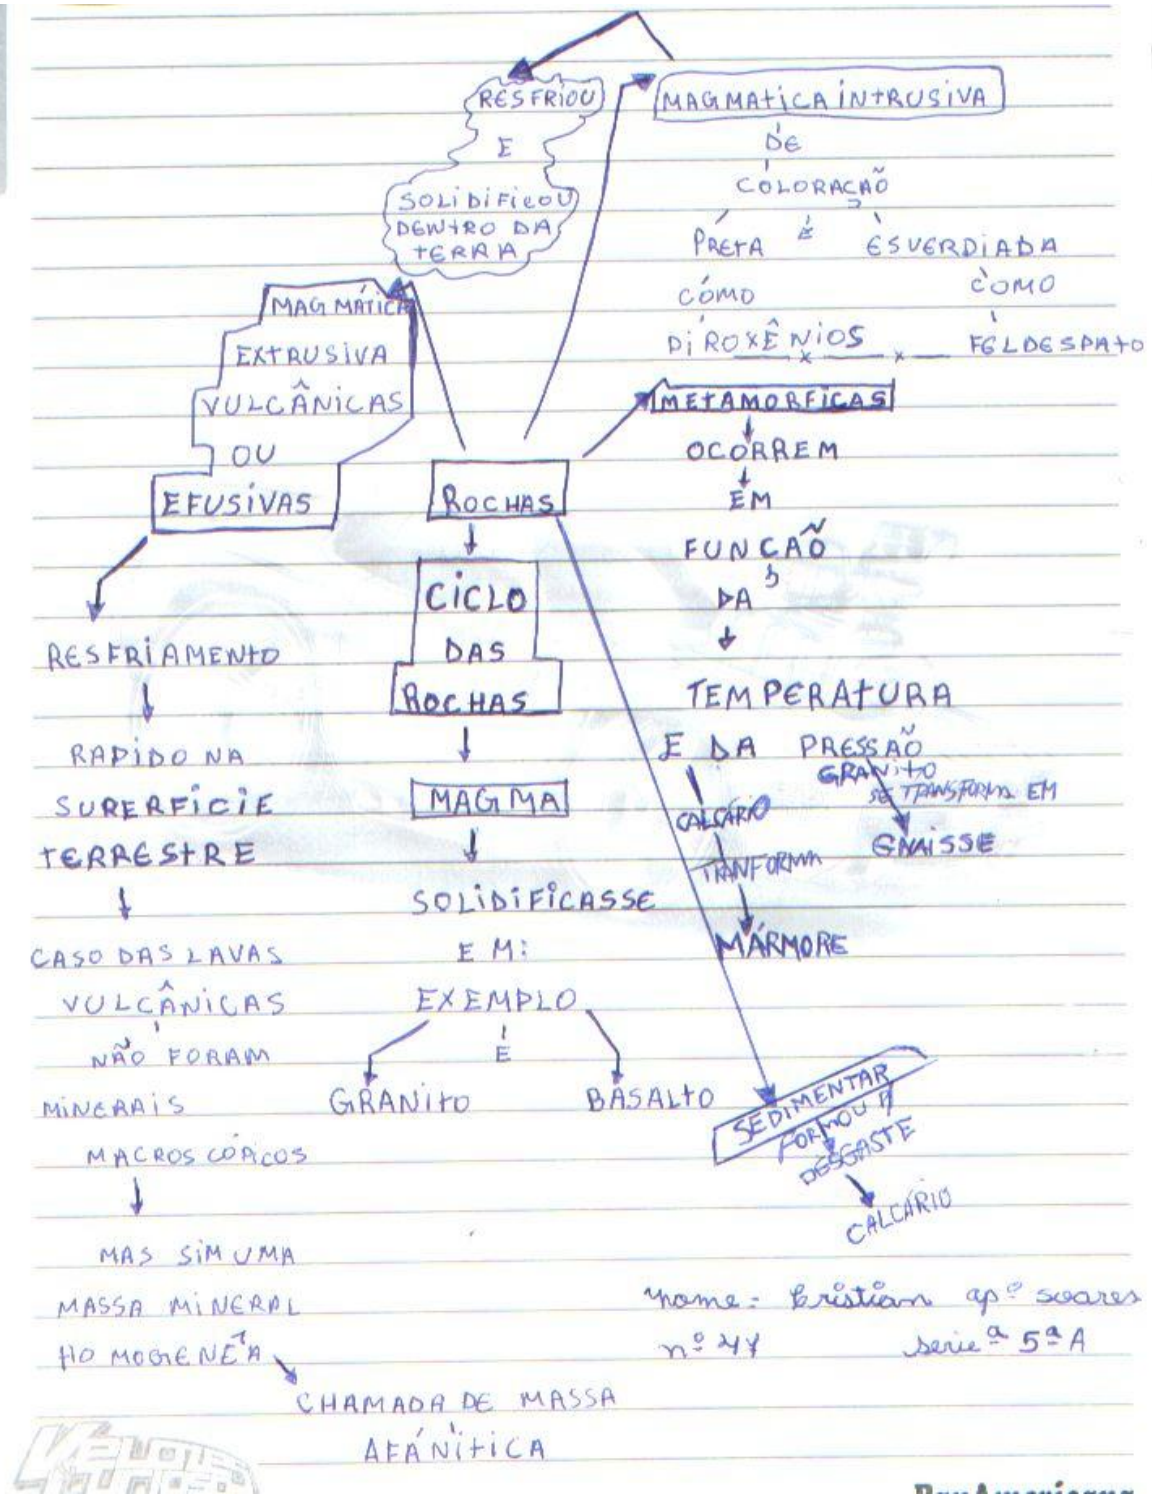 RESFRIOU
E
SOLIDIFICOU
DENTRO DA
TERRA
MAGMATICA INTRUSIVA
DE
COLORAÇÃO
PRETA E ESVERDIADA
COMO COMO
PIROXÊNIOS FELDESPATO
MAGMÁTICA
EXTRUSIVA
VULCÂNICAS
OU
EFUSIVAS
RESFRIAMENTO
RAPIDO NA
SURERFÍCIE
TERRESTRE
CASO DAS LAVAS
VULCÂNICAS
NÃO FORAM
MINERAIS
MACROSCÓPICOS
MAS SIM UMA
MASSA MINERAL
HOMOGENEA
CHAMADA DE MASSA
AFANÍTICA
ROCHAS
CICLO
DAS
ROCHAS
MAGMA
SOLIDIFICASSE
EM:
EXEMPLO
E
GRANITO BASALTO
METAMORFICAS
OCORREM
EM
FUNÇÃO
DA
TEMPERATURA
E DA PRESSÃO
CALCÁRIO
TRANFORMA
MÁRMORE
GRANITO
SE TRANSFORMA EM
GNAISSE
SEDIMENTAR
FORMOU P/
DESGASTE
CALCÁRIO
nome = Cristian apº soares
nº 47 serieª 5ª A
PanAmericana